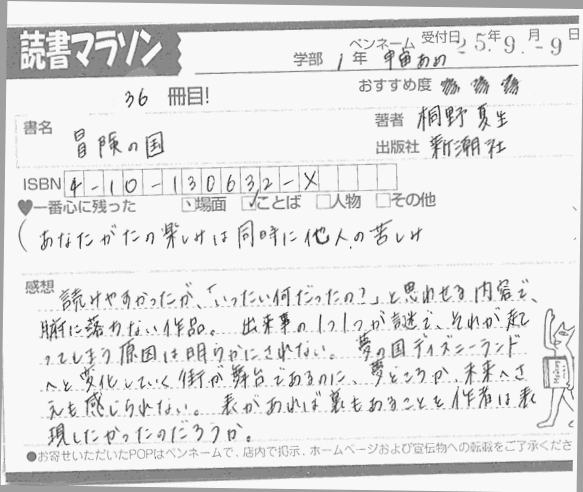 読書マラソン
学部 1年 ペンネーム 宇宙あめ 受付日 25年9月-9日
36 冊目! おすすめ度
書名 冒険の国
著者 桐野夏生
出版社 新潮社
ISBN 4-10-130632-X
♥一番心に残った □場面 ☑ことば □人物 □その他
(あなたがたの楽しみは同時に他人の苦しみ
感想 読けやすかったが、「いったい何だったの?」と思わせる内容で、
腑に落ちない作品。 出来事の1つ1つが謎で、それが起こ
ってしまう原因は明らかにされない。 夢の国ディズニーランド
へと変化していく街が舞台であるのに、夢どころか、未来へさ
えも感じられない。表があれば裏もあることを作者は表
現したかったのだろうか。
●お寄せいただいたPOPはペンネームで、店内で掲示、ホームページおよび宣伝物への転載をご了承くださ